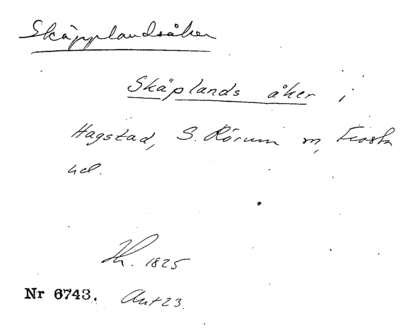 Skäpplandsåker
Skäplands åker i
Hagstad, S. Rörum m, Frosta
hd.
Hk. 1825
Nr 6743. Ant 23.